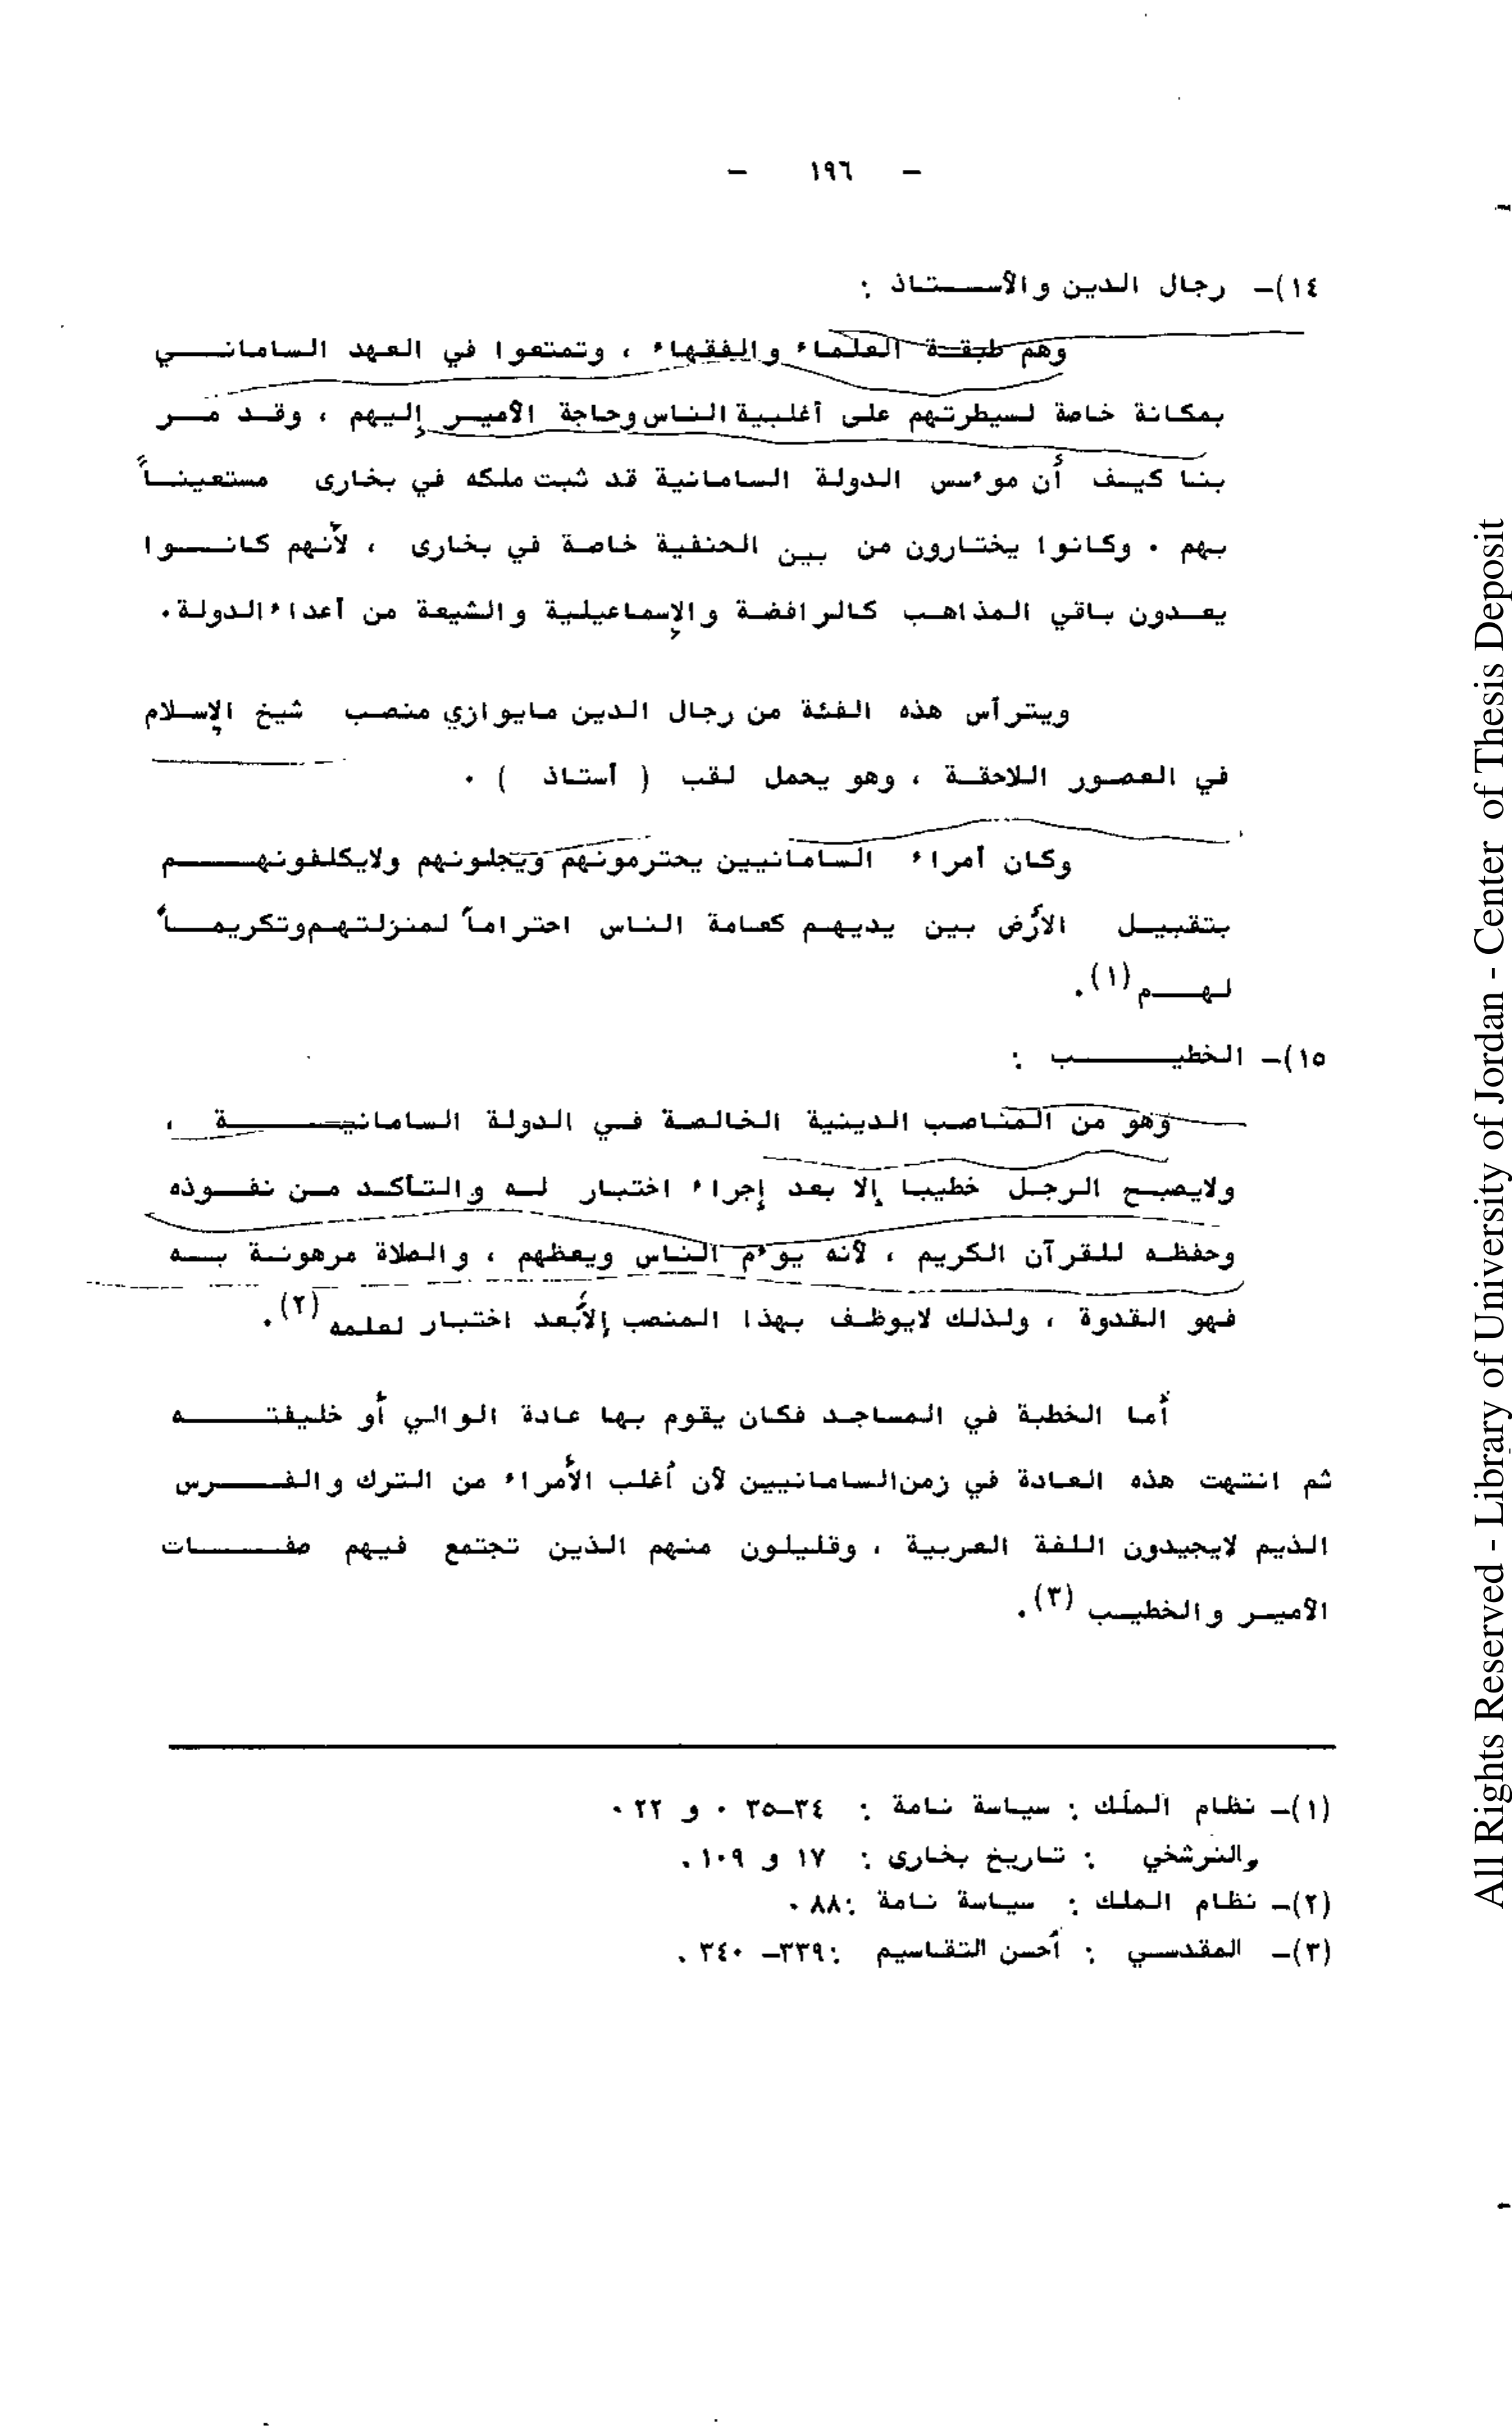 - ١٩٦ -
١٤)- رجال الدين والأستاذ :
وهم طبقة العلماء والفقهاء ، وتمتعوا في العهد الساماني
بمكانة خاصة لسيطرتهم على أغلبية الناس وحاجة الأمير إليهم ، وقد مر
بنا كيف أن موءسس الدولة السامانية قد ثبت ملكه في بخارى مستعيناً
بهم . وكانوا يختارون من بين الحنفية خاصة في بخارى ، لأنهم كانوا
يعدون باقي المذاهب كالرافضة والإسماعيلية والشيعة من أعداء الدولة.
ويترأس هذه الفئة من رجال الدين مايوازي منصب شيخ الإسلام
في العصور اللاحقة ، وهو يحمل لقب ( أستاذ ) .
وكان أمراء السامانيين يحترمونهم ويجلونهم ولايكلفونهم
بتقبيل الأرض بين يديهم كعامة الناس احتراماً لمنزلتهم وتكريماً
لهم (١).
١٥)- الخطيب :
وهو من المناصب الدينية الخالصة في الدولة السامانية ،
ولايصبح الرجل خطيبا إلا بعد إجراء اختبار له والتأكد من نفوذه
وحفظه للقرآن الكريم ، لأنه يوءم الناس ويعظهم ، والصلاة مرهونة به
فهو القدوة ، ولذلك لايوظف بهذا المنصب إلا بعد اختبار لعلمه (٢).
أما الخطبة في المساجد فكان يقوم بها عادة الوالي أو خليفته
ثم انتهت هذه العادة في زمن السامانيين لأن أغلب الأمراء من الترك والفرس
الذيم لايجيدون اللغة العربية ، وقليلون منهم الذين تجتمع فيهم صفات
الأمير والخطيب (٣).
(١)- نظام الملك : سياسة نامة : ٣٤-٣٥ . و ٢٢ .
والنرشخي : تاريخ بخارى : ١٧ و ١٠٩.
(٢)- نظام الملك : سياسة نامة : ٨٨ .
(٣)- المقدسي : أحسن التقاسيم : ٣٣٩- ٣٤٠ .
All Rights Reserved - Library of University of Jordan - Center of Thesis Deposit